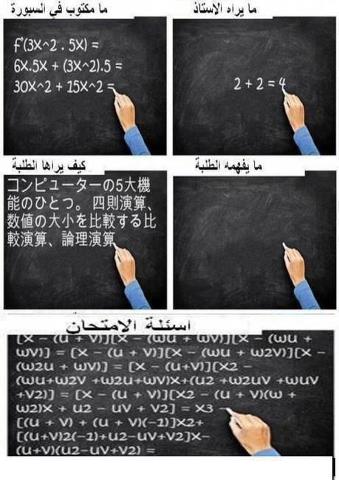 ما مكتوب في السبورة
ما يراه الاستاذ
f'(3x^2 . 5x) =
6x.5x + (3x^2).5 =
30x^2 + 15x^2 =
2 + 2 = 4
كيف يراها الطلبة
ما يفهمه الطلبة
コンピューターの5大機
能のひとつ。 四則演算、
数値の大小を比較する比
較演算、論理演算
اسئلة الامتحان
[x - (u + v)][x - (ωu + ωv)][x - (ωu +
ωv)] = [x - (u + v)][x - (ωu + ω2v)][x -
(ω2u + ωv)] = [x - (u+v)][x2 -
(ωu+ω2v +ω2u+ωv)x+(u2 +ω2uv +ωuv
+v2)] = [x - (u + v)][x2 - (u + v)(ω +
ω2)x + u2 - uv + v2] = x3 -
[(u + v) + (u + v)(-1)]x2+
[(u+v)2(-1)+u2-uv+v2]x-
(u+v)(u2-uv+v2) =